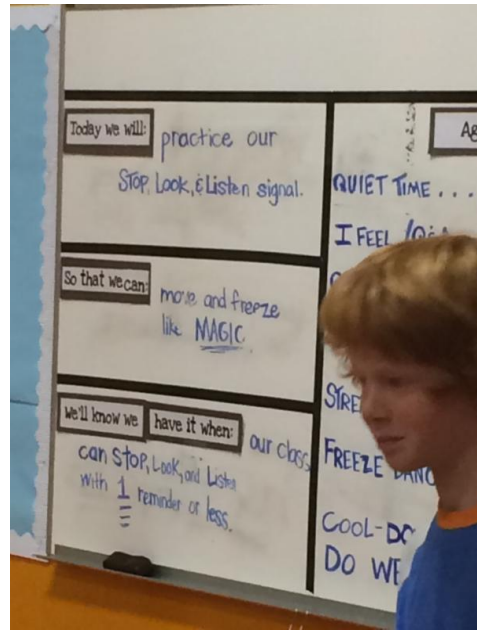 Today we will: practice our
STOP, Look, & Listen signal.
So that we can: move and freeze
like MAGIC.
We'll know we have it when: our class
can STOP, Look, and Listen
with 1 reminder or less.
QUIET TIME...
I FEEL
FREEZE
COOL-
DO WE